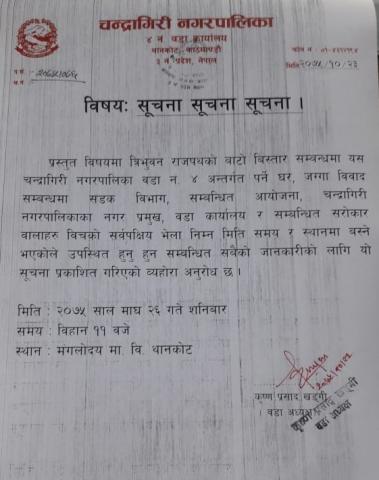 चन्द्रागिरी नगरपालिका
४ नं वडा कार्यालय
थानकोट, काठमाण्डौ
३ नं प्रदेश, नेपाल
प.सं.
च.नं.
मिति २०७५/१०/२३
विषयः सूचना सूचना सूचना ।
प्रस्तुत विषयमा त्रिभुवन राजपथको बाटो बिस्तार सम्बन्धमा यस
चन्द्रागिरी नगरपालिका वडा नं. ४ अन्तर्गत पर्ने घर, जग्गा विवाद
सम्बन्धमा सडक विभाग, सम्बन्धित आयोजना, चन्द्रागिरी
नगरपालिकाका नगर प्रमुख, वडा कार्यालय र सम्बन्धित सरोकार
वालाहरु विचको सर्वपक्षिय भेला निम्न मिति समय र स्थानमा बस्ने
भएकोले उपस्थित हुनु हुन सम्बन्धित सबैको जानकारीको लागि यो
सूचना प्रकाशित गरिएको व्यहोरा अनुरोध छ ।
मिति : २०७५ साल माघ २६ गते शनिबार
समय : विहान ११ वजे
स्थान : मंगलोदय मा. वि. थानकोट
कृष्ण प्रसाद खड्गी
वडा अध्यक्ष
कृष्ण प्रसाद खड्गी
वडा अध्यक्ष